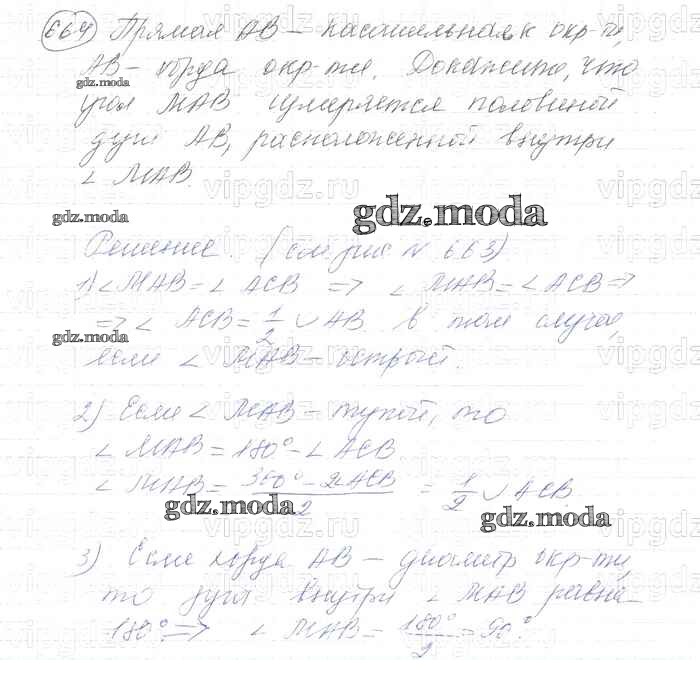 664 Прямая AB — касательная к окр-ти,
AB — хорда окр-ти. Докажите, что
gdz.moda
угол MAB измеряется половиной
дуги AB, расположенной внутри
∠ MAB.
gdz.moda
gdz.moda
Решение. (см рис N 663)
1) ∠ MAB = ∠ ACB => ∠ MAB = ∠ ACB =>
=> ∠ ACB = 1/2 ∪ AB. в том случае,
gdz.moda
если ∠ MAB — острый.
2) Если ∠ MAB — тупой, то
∠ MAB = 180° - ∠ ACB
∠ MAB = 360° - 2ACB / 2 = 1/2 ∪ ACB.
gdz.moda
gdz.moda
3) Если хорда AB — диаметр окр-ти,
то дуга внутри ∠ MAB равна
180° => ∠ MAB = 180°/2 = 90°.
vipgdz.ru